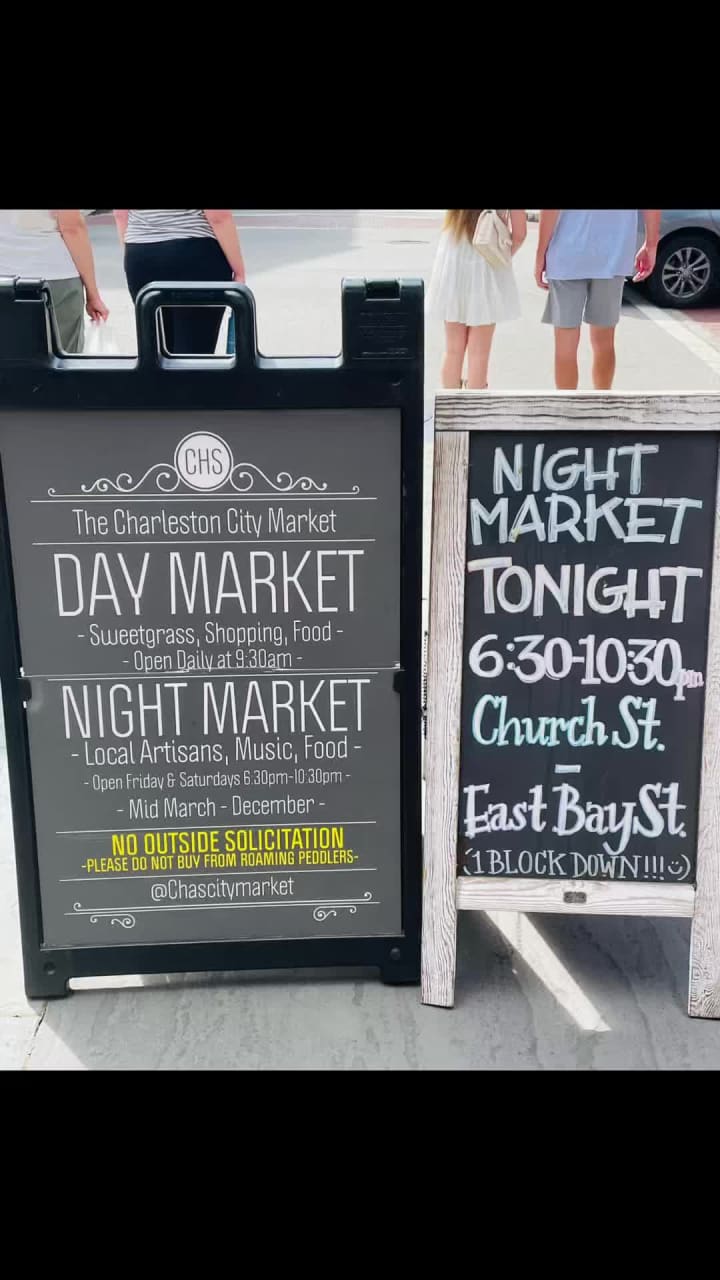 CHS
The Charleston City Market
DAY MARKET
- Sweetgrass, Shopping, Food -
- Open Daily at 9:30am -
NIGHT MARKET
- Local Artisans, Music, Food -
- Open Friday & Saturdays 6:30pm-10:30pm -
- Mid March - December -
NO OUTSIDE SOLICITATION
-PLEASE DO NOT BUY FROM ROAMING PEDDLERS-
@Chascitymarket
NIGHT
MARKET
TONIGHT
6:30-10:30pm
Church St.
-
East Bay St.
(1 BLOCK DOWN!!!☺)